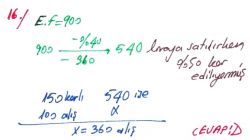 16./ E.f=900
900 -%40 → 540 liraya satılırken
- 360 %50 kar
ediliyormuş
150 karlı 540 ise
100 alış x
x = 360 alış
(CEVAP:D)